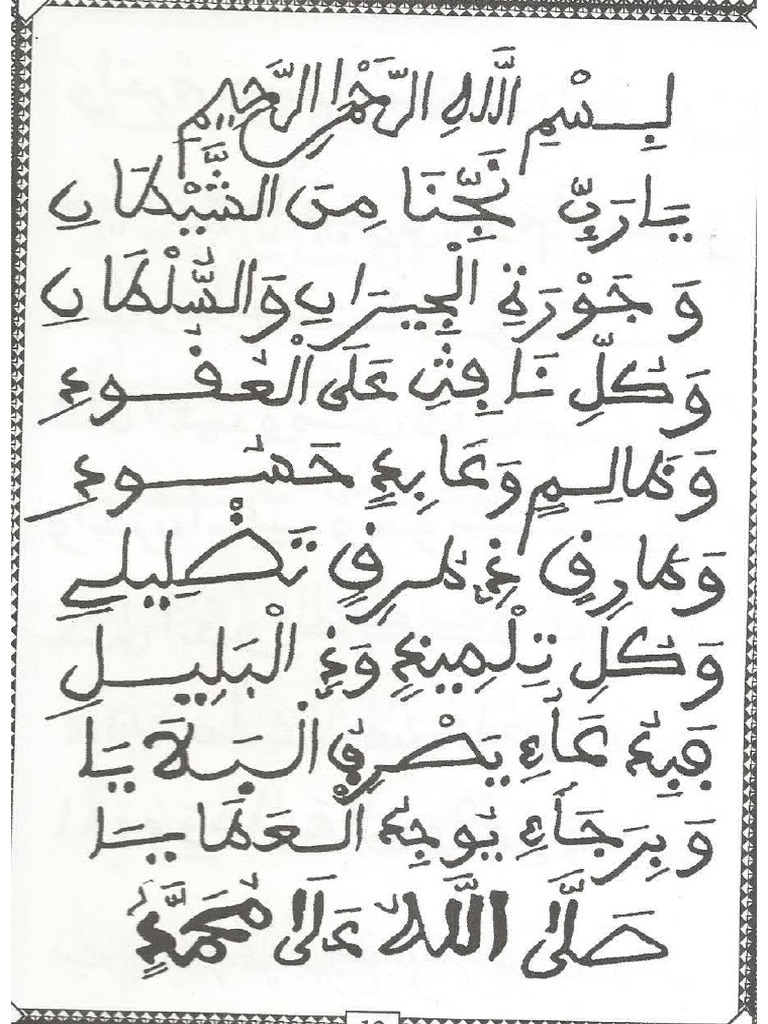 بِسْمِ اللَّهِ الرَّحْمٰنِ الرَّحِيمِ
يَا رَبِّ نَجِّنَا مِنَ الشَّيْطَانِ
وَجَوْرَةِ الْجِيرَانِ وَالسُّلْطَانِ
وَكُلِّ نَافِثٍ عَلَى الْعُقُودِ
وَظَالِمٍ حَسُودِ
وَطَارِقٍ تَضْلِيلِ
وَكُلِّ تِلْمِيذٍ وَذِي
فَبِدُعَاءٍ يَصْرِفُ الْبَلَايَا
وَبِرَجَاءٍ يُوجِدُ الْعَطَايَا
صَلَّى اللَّهُ عَلَى مُحَمَّدٍ